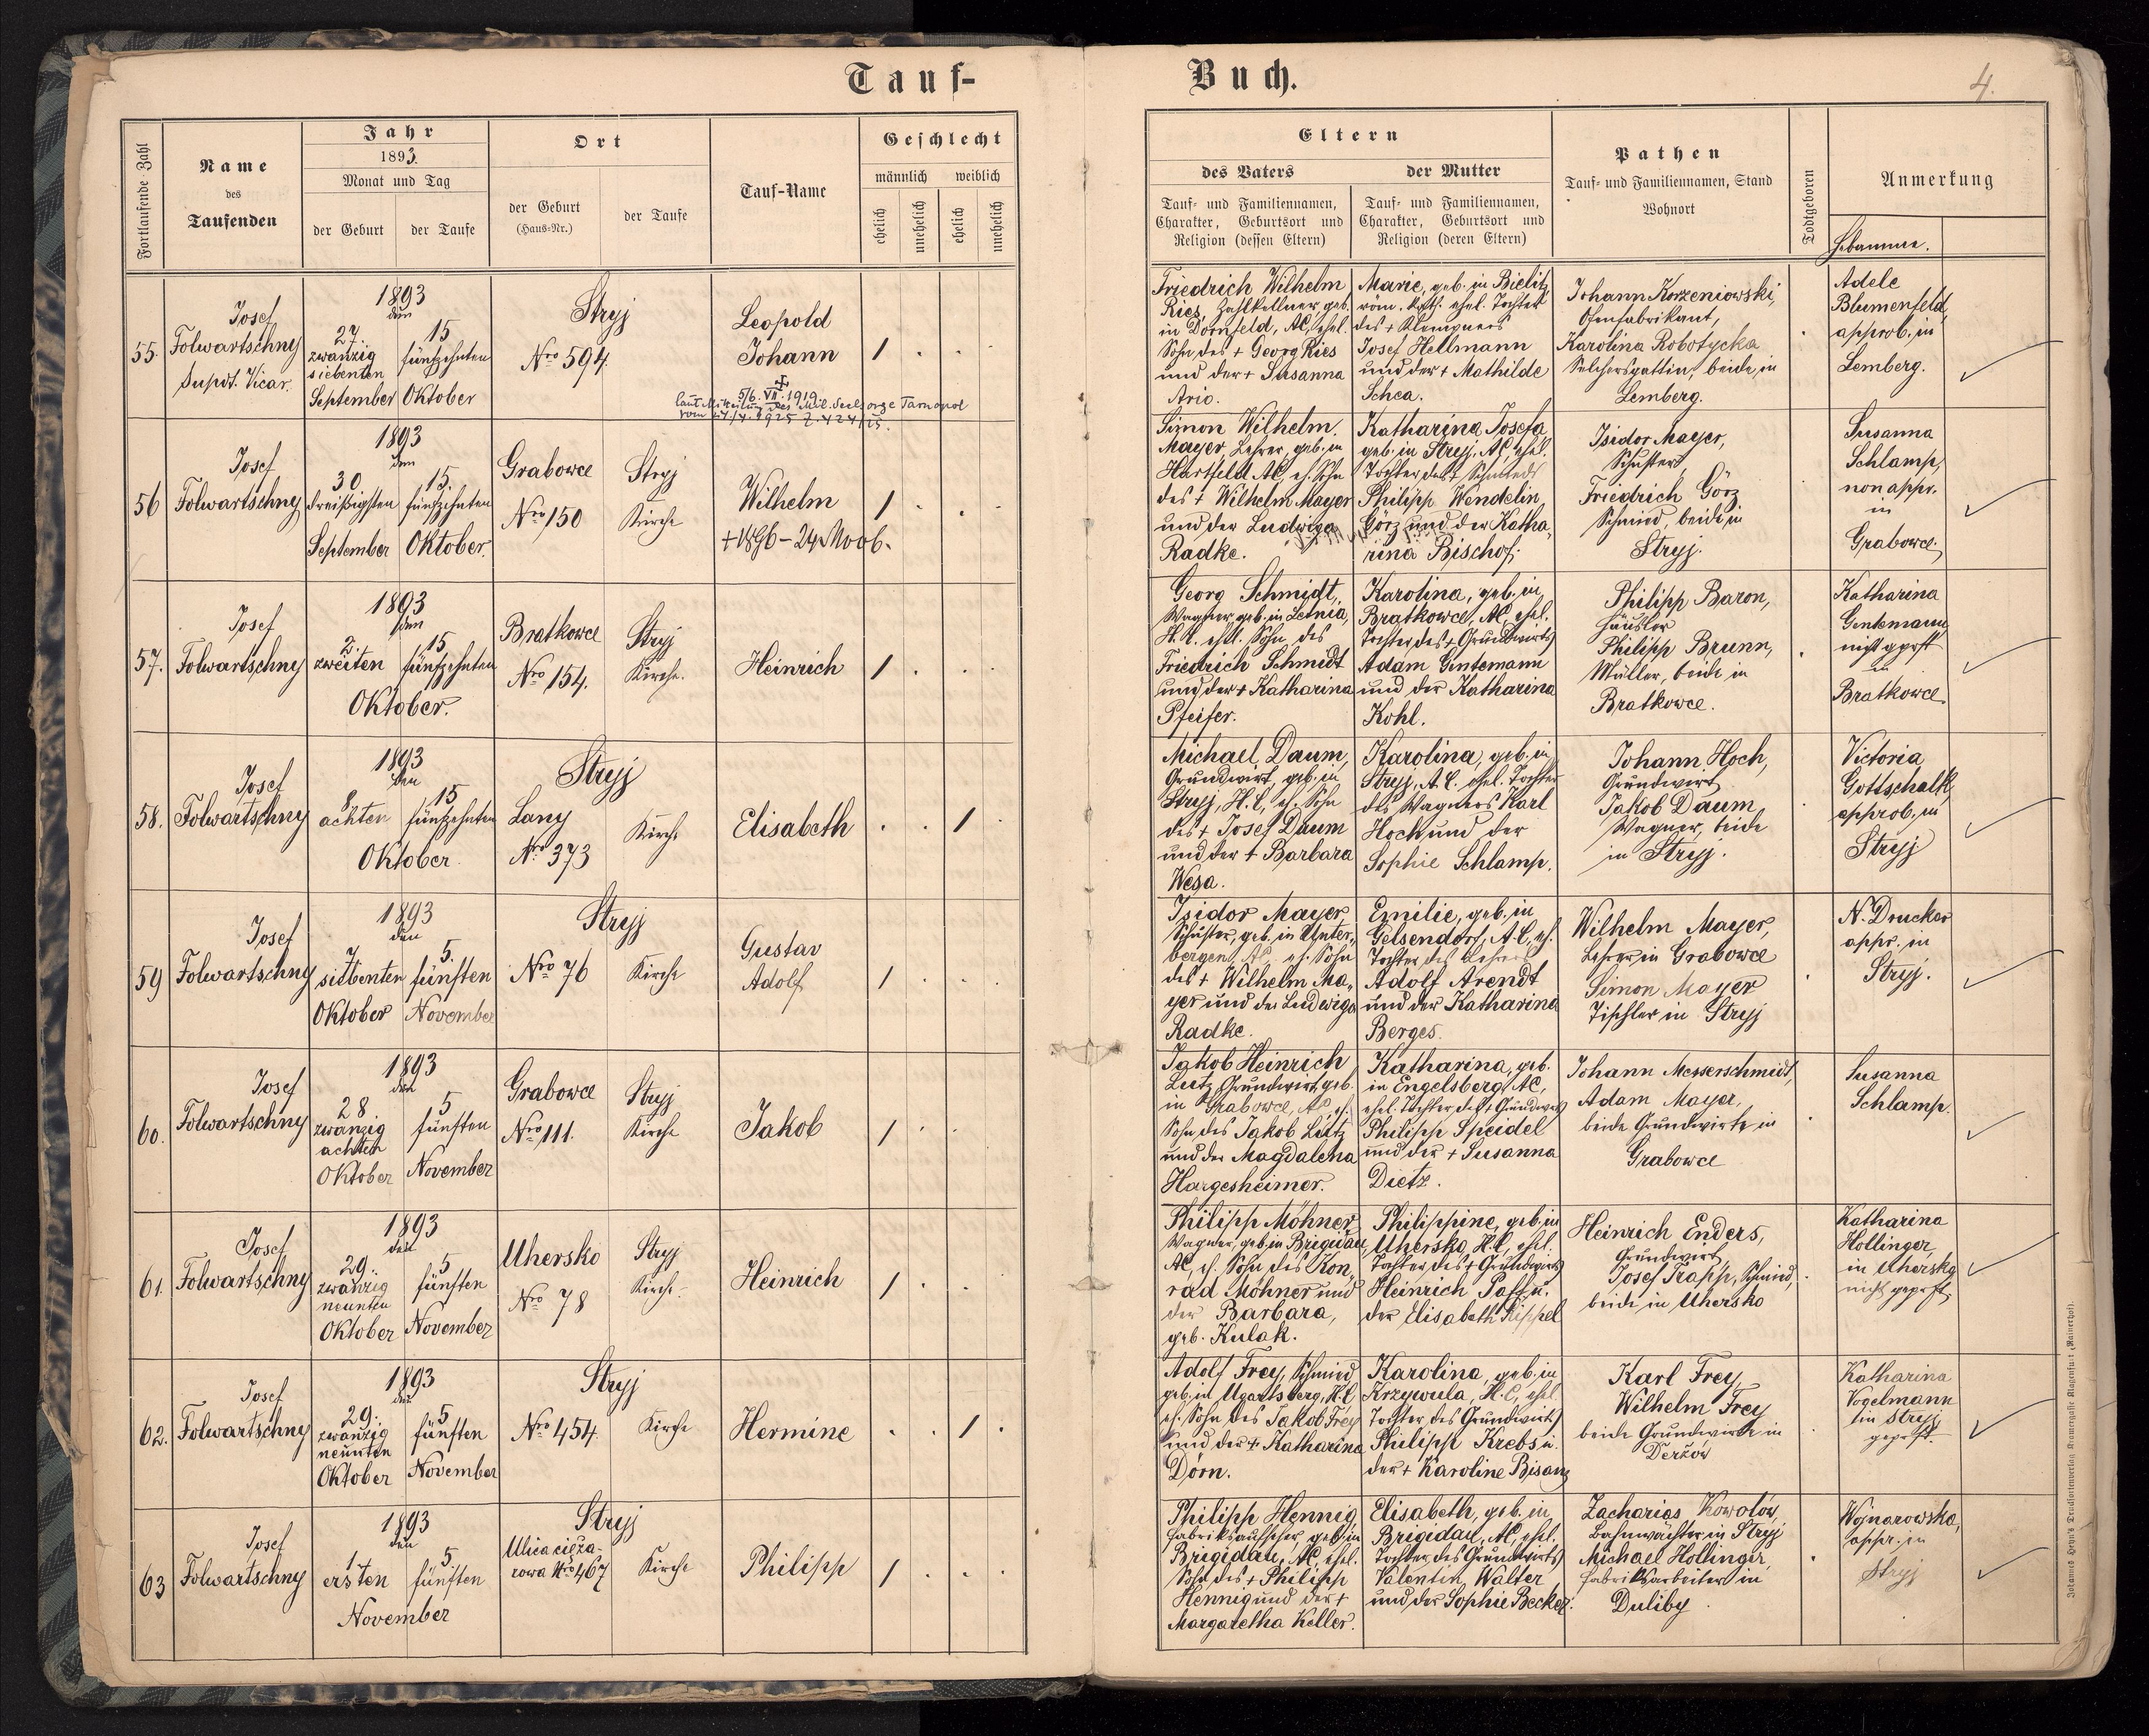 Tauf-
Buch.
4.
Fortlaufende Zahl
Name
des
Taufenden
Jahr
1893.
Monat und Tag
der Geburt
der Taufe
Ort
der Geburt
(Haus-Nr.)
der Taufe
Tauf-Name
Geschlecht
männlich
weiblich
ehelich
unehelich
ehelich
unehelich
Eltern
des Vaters
der Mutter
Tauf- und Familiennamen,
Charakter, Geburtsort und
Religion (dessen Eltern)
Tauf- und Familiennamen,
Charakter, Geburtsort und
Religion (deren Eltern)
Pathen
Tauf- und Familiennamen, Stand
Wohnort
Todtgeboren
Anmerkung
Hebamme.
55.
Josef
Folwartschny
Supdt. Vicar.
1893
den
27.
zwanzig
siebenten
September
15
fünfzehnten
Oktober
Stryj
Nro 594.
Leopold
Johann
5/6. VII. 1919.
laut Mitteilung des Mil. Seelsorge Tarnopol
1
Friedrich Wilhelm
Ries, Zahlkellner, geb.
in Dornfeld, AC, ehel.
Sohn des + Georg Ries
und der + Susanna
Ario.
Marie, geb. in Bielitz
röm. kath. ehel. Tochter
des + Klempners
Josef Hellmann
und der + Mathilde
Schea.
Johann Korzeniowski,
Ofenfabrikant,
Karolina Robotycka
Selchersgattin, beide in
Lemberg.
Adele
Blumenfeld,
approb. in
Lemberg.
56
Josef
Folwartschny
1893
den
30
dreißigsten
September
15.
fünfzehnten
Oktober.
Grabowce
Nro 150
Stryj
Kirche
Wilhelm
1
Simon Wilhelm
Mayer, Lehrer, geb. in
Hartfeld AC, eh. Sohn
des + Wilhelm Mayer
und der Ludwiga
Radke.
Katharina Josefa
geb. in Stryj, AC, ehel.
Tochter des + Schmieds
Philipp Wendelin
Görz und der Katha-
rina Bischof.
Isidor Mayer,
Schuster,
Friedrich Görz
Schmied, beide in
Stryj.
Susanna
Schlamp,
non appr.
in
Grabowce.
57.
Josef
Folwartschny
1893
den
2.
zweiten
15
fünfzehnten
Oktober.
Bratkowce
Nro 154.
Stryj
Kirche.
Heinrich
1
Georg Schmidt,
Wagner, geb. in Letnia,
H.C. ehel. Sohn des
Friedrich Schmidt
und der + Katharina
Pfeifer.
Karolina, geb. in
Bratkowce, AC, ehel.
Tochter des + Grundwirts
Adam Gintemann
und der Katharina
Kohl.
Philipp Baron,
Häusler
Philipp Brunn,
Müller, beide in
Bratkowce.
Katharina
Gintemann
nicht geprft
in
Bratkowce.
58.
Josef
Folwartschny
1893
den
8.
achten
15
fünfzehnten
Oktober.
Stryj
Lany
Nro 373
Kirche
Elisabeth
1
Michael Daum,
Grundwirt, geb. in
Stryj, H.C, eh. Sohn
des + Josef Daum
und der + Barbara
Wesa.
Karolina, geb. in
Stryj, A.C. ehel. Tochter
des Wagners Karl
Hoch und der
Sophie Schlamp.
Johann Hoch,
Grundwirt
Jakob Daum
Wagner, beide
in Stryj.
Victoria
Gottschalk,
approb. in
Stryj
59
Josef
Folwartschny
1893
den
7.
siebenten
Oktober
5.
fünften
November
Stryj
Nro 76
Kirche
Gustav
Adolf
1
Isidor Mayer,
Schuster, geb. in Unter-
bergen, AC. eh. Sohn
des + Wilhelm Ma-
yer und der Ludwiga
Radke.
Emilie, geb. in
Gelsendorf, A.C, eh.
Tochter des Lehrers
Adolf Arendt
und der Katharina
Berges.
Wilhelm Mayer,
Lehrer in Grabowce
Simon Mayer
Tischler in Stryj
N. Drucker
appr. in
Stryj.
60.
Josef
Folwartschny
1893
den
28
zwanzig
achten
Oktober
5
fünften
November
Grabowce
Nro 111.
Stryj
Kirche
Jakob
1
Jakob Heinrich
Lutz, Grundwirt, geb.
in Grabowce, AC, eh.
Sohn des Jakob Lutz
und der Magdalena
Hargesheimer.
Katharina, geb.
in Engelsberg, AC,
ehel. Tochter des + Grundwirts
Philipp Speidel
und der + Susanna
Dietz.
Johann Messerschmidt,
Adam Mayer,
beide Grundwirte in
Grabowce
Susanna
Schlamp.
61.
Josef
Folwartschny
1893
den
29.
zwanzig
neunten
Oktober
5
fünften
November
Uhersko
Nro 78
Stryj
Kirche.
Heinrich
1
Philipp Möhner,
Wagner, geb. in Brigidau,
AC, eh. Sohn des Kon-
rad Möhner und
der Barbara,
geb. Kulak.
Philippine, geb. in
Uhersko, H.C, ehel.
Tochter des + Grundwirts
Heinrich Paff u.
der Elisabeth Rippel
Heinrich Enders,
Grundwirt
Josef Trapp, Schmied,
beide in Uhersko
Katharina
Hollinger,
in Uhersko
nicht geprft
62.
Josef
Folwartschny
1893
den
29.
zwanzig
neunten
Oktober
5
fünften
November
Stryj
Nro 454.
Kirche
Hermine
1
Adolf Frey, Schmied
geb. in Ugartsberg, H.C
eh. Sohn des Jakob Frey
und der + Katharina
Dörn.
Karolina, geb. in
Krzywula, H.C, ehel
Tochter des Grundwirts
Philipp Krebs u.
der + Karoline Bisanz
Karl Frey,
Wilhelm Frey
beide Grundwirte in
Derżów
Katharina
Vogelmann
in Stryj
geprft.
63
Josef
Folwartschny
1893
den
1.
ersten
5.
fünften
November
Stryj
Ulica cięża-
rowa Nro 467
Kirche
Philipp
1
Philipp Hennig,
Fabriksaufseher, geb. in
Brigidau, AC, ehel.
Sohn des + Philipp
Hennig und der +
Margaretha Keller.
Elisabeth, geb. in
Brigidau, AC, ehel.
Tochter des Grundwirts
Valentin Walter
und der Sophie Becker.
Zacharias Kowolów,
Bahnwächter in Stryj
Michael Hollinger,
Fabriksarbeiter in
Duliby
Wojnarowska,
appr. in
Stryj